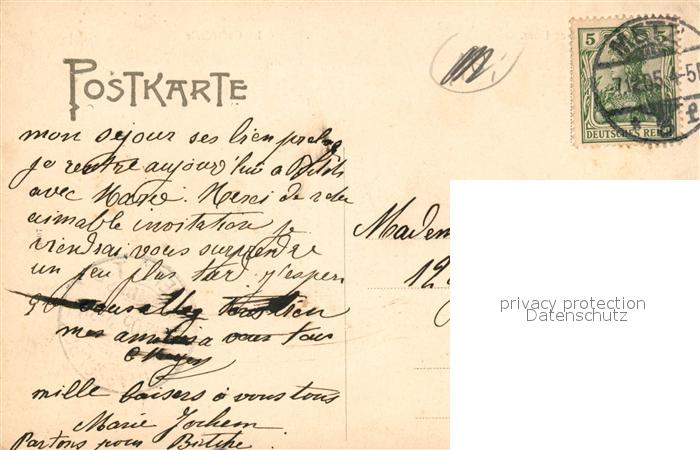 POSTKARTE
5 5
METZ
7.12.05. 4-5
DEUTSCHES REICH
mon sejour ses bien
je rentre aujourd'hui a Bitch
avec Marie. Merci de
aimable invitation je
viendrai vous surprendre
un peu plus tard j'esper
vous allez bien
mes a vous tous
mille baisers à vous tous
Marie Jochem
Partons pour Bitche.
Madem
12
privacy protection
Datenschutz